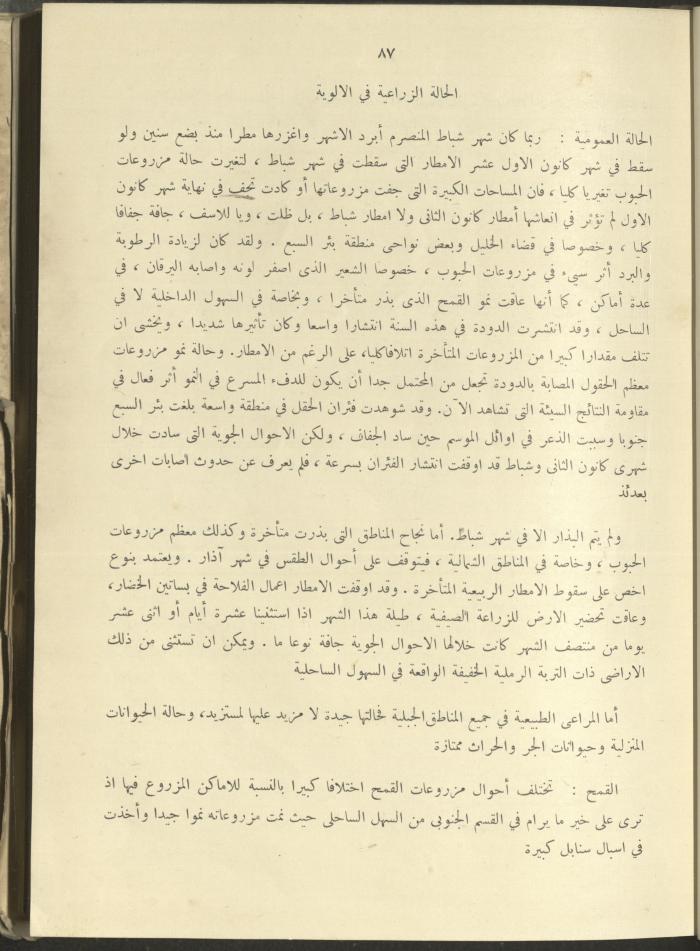 ٨٧
الحالة الزراعية في الالوية
الحالة العمومية : ربما كان شهر شباط المنصرم أبرد الاشهر واغزرها مطرا منذ بضع سنين ولو
سقط في شهر كانون الاول عشر الامطار التى سقطت في شهر شباط ، لتغيرت حالة مزروعات
الحبوب تغيريا كليا ، فان المساحات الكبيرة التى جفت مزروعاتها أو كادت تجف في نهاية شهر كانون
الاول لم تؤثر في انعاشها أمطار كانون الثانى ولا امطار شباط ، بل ظلت ، ويا للاسف ، جافة جفافا
كليا ، وخصوصا في قضاء الخليل وبعض نواحى منطقة بئر السبع . ولقد كان لزيادة الرطوبة
والبرد أثر سيء في مزروعات الحبوب ، خصوصا الشعير الذى اصفر لونه واصابه اليرقان ، في
عدة أماكن ، كما أنها عاقت نمو القمح الذى بذر متأخرا ، وبخاصة في السهول الداخلية لا في
الساحل ، وقد انتشرت الدودة في هذه السنة انتشارا واسعا وكان تأثيرها شديدا ، ويخشى ان
تتلف مقدارا كبيرا من المزروعات المتأخرة اتلافا كليا، على الرغم من الامطار. وحالة نمو مزروعات
معظم الحقول المصابة بالدودة تجعل من المحتمل جدا أن يكون للدفء المسرع في النمو أثر فعال في
مقاومة النتائج السيئة التى تشاهد الآن. وقد شوهدت فئران الحقل في منطقة واسعة بلغت بئر السبع
جنوبا وسببت الذعر في اوائل الموسم حين ساد الجفاف ، ولكن الاحوال الجوية التى سادت خلال
شهرى كانون الثانى وشباط قد اوقفت انتشار الفئران بسرعة ، فلم يعرف عن حدوث اصابات اخرى
بعدئذ
ولم يتم البذار الا في شهر شباط. أما نجاح المناطق التى بذرت متأخرة وكذلك معظم مزروعات
الحبوب ، وخاصة في المناطق الشمالية ، فيتوقف على أحوال الطقس في شهر آذار . ويعتمد بنوع
اخص على سقوط الامطار الربيعية المتأخرة . وقد اوقفت الامطار اعمال الفلاحة في بساتين الخضار،
وعاقت تحضير الارض للزراعة الصيفية ، طيلة هذا الشهر اذا استثنينا عشرة أيام أو اثنى عشر
يوما من منتصف الشهر كانت خلالها الاحوال الجوية جافة نوعا ما . ويمكن ان تستثنى من ذلك
الاراضى ذات التربة الرملية الخفيفة الواقعة في السهول الساحلية
أما المراعى الطبيعية في جميع المناطق الجبلية فحالتها جيدة لا مزيد عليها لمستزيد، وحالة الحيوانات
المنزلية وحيوانات الجر والحراث ممتازة
القمح : تختلف أحوال مزروعات القمح اختلافا كبيرا بالنسبة للاماكن المزروع فيها اذ
ترى على خير ما يرام في القسم الجنوبى من السهل الساحلى حيث نمت مزروعاته نموا جيدا وأخذت
في اسبال سنابل كبيرة